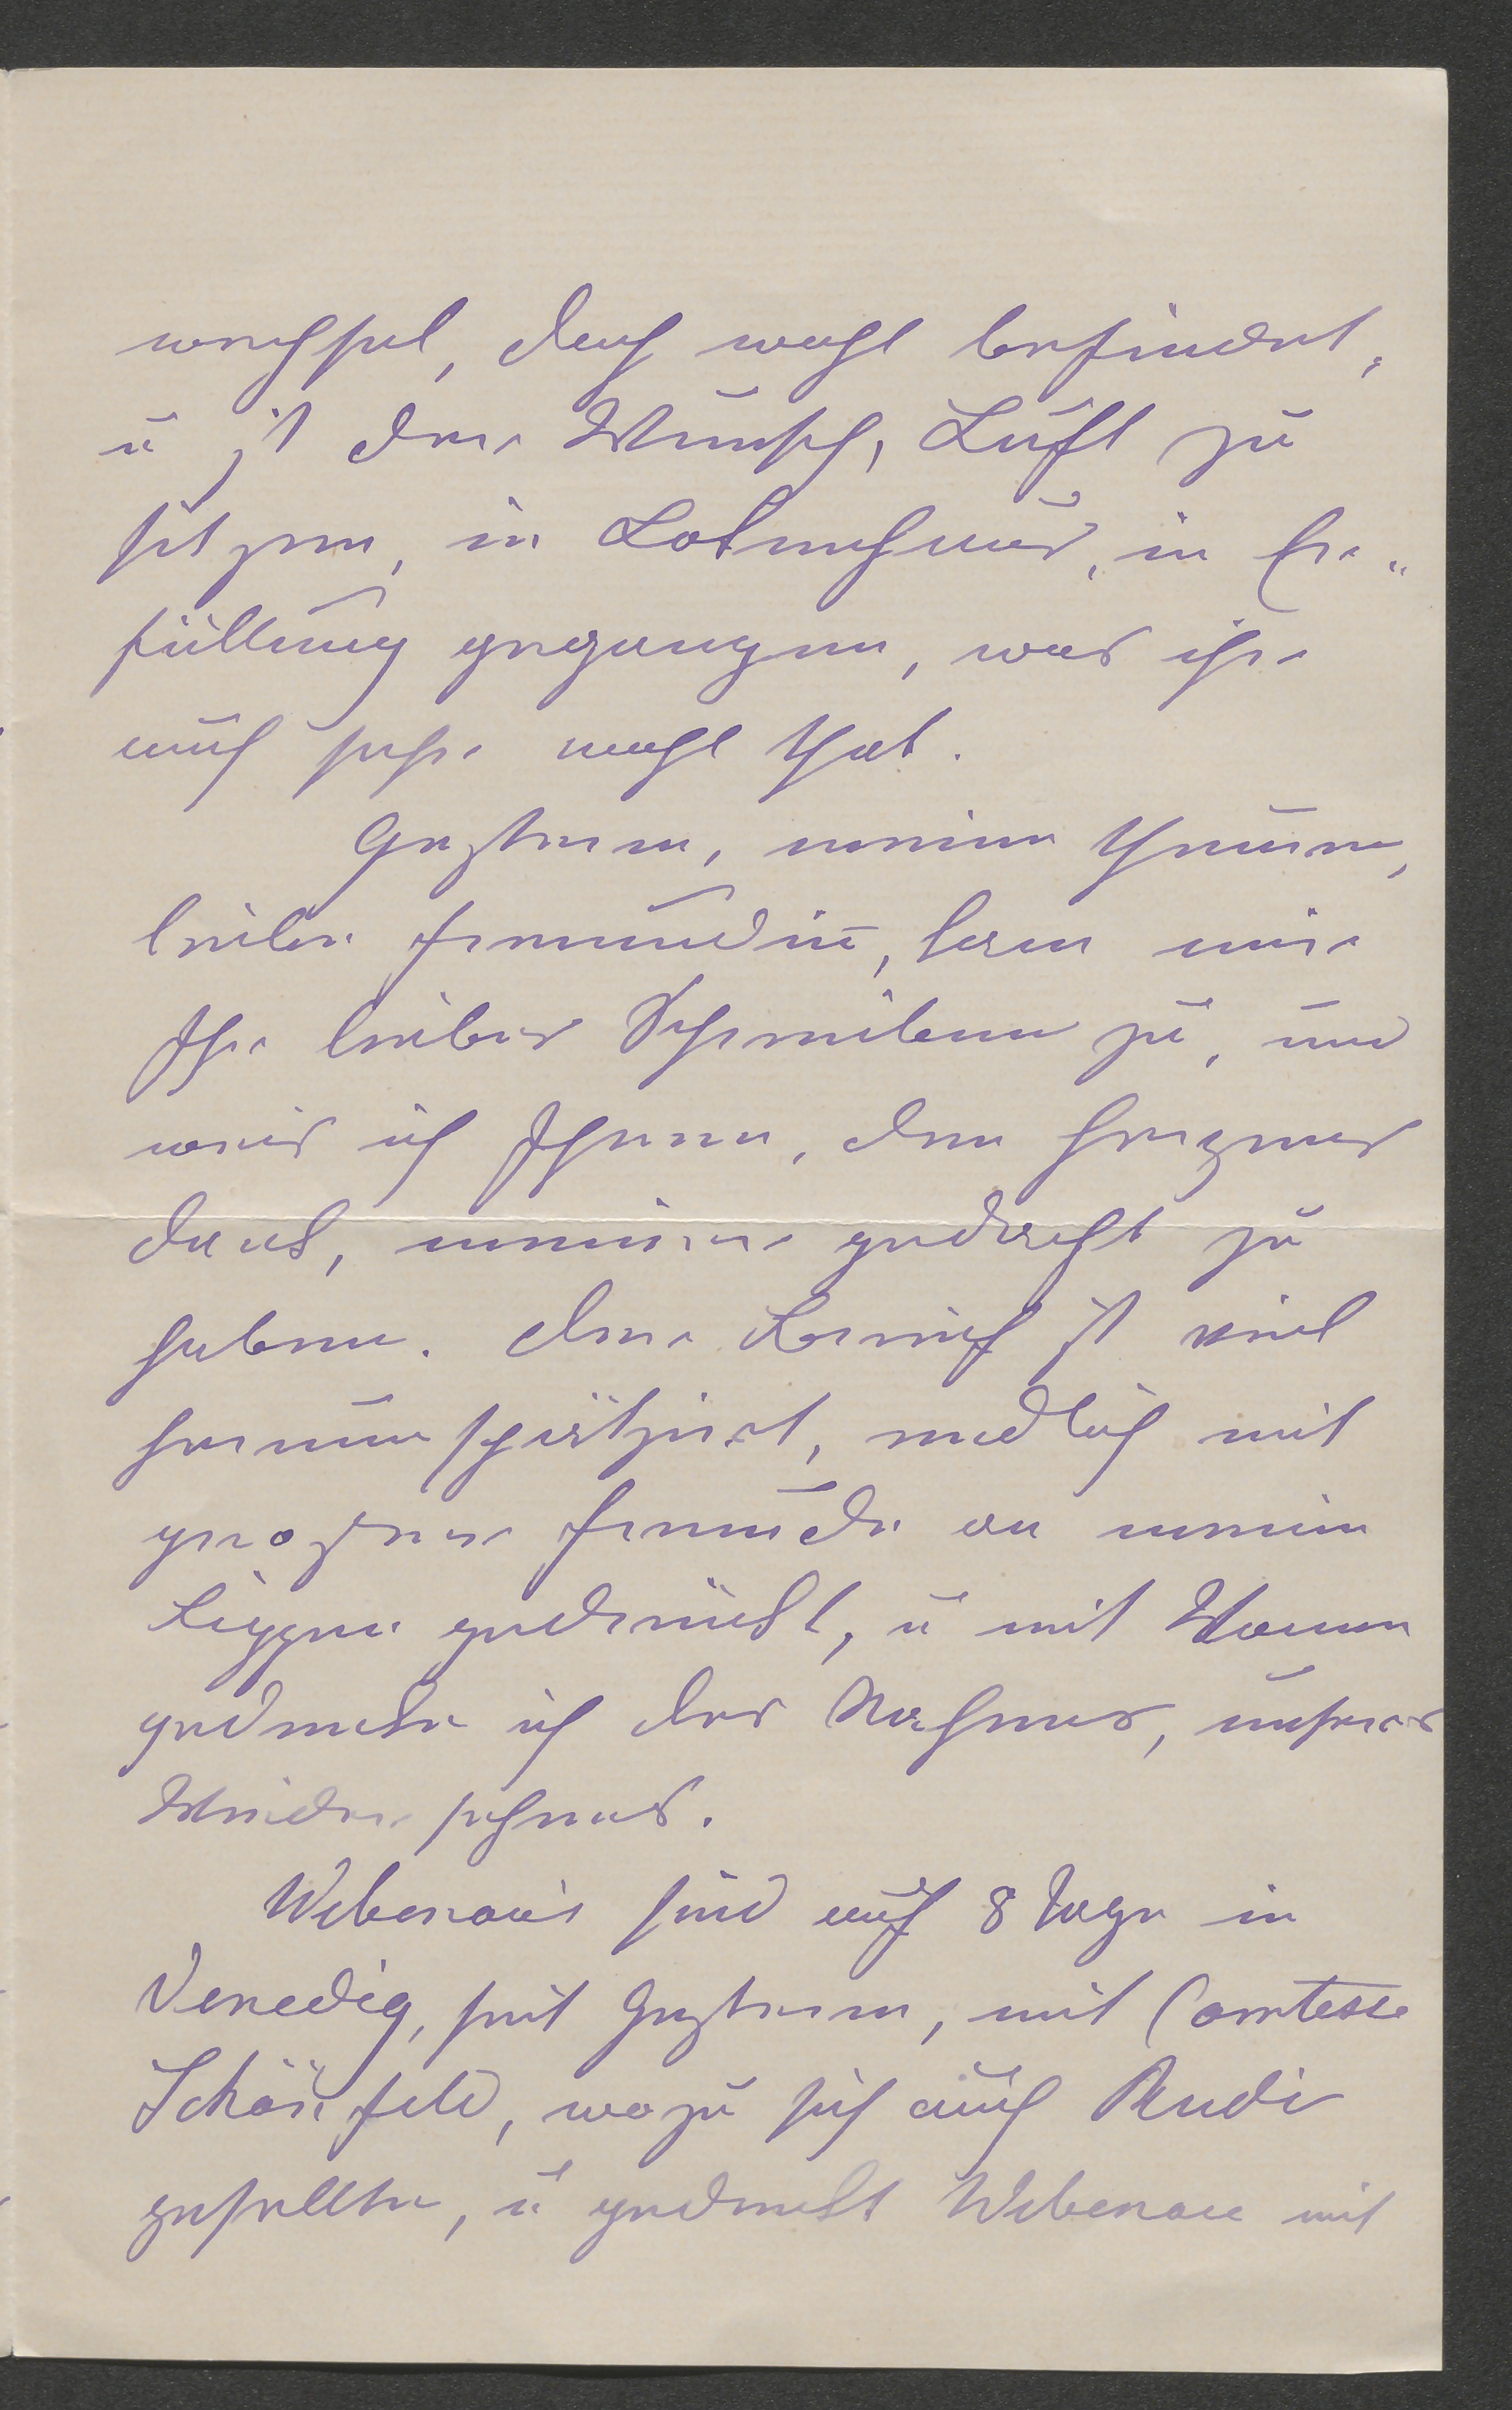 wechsel, doch wohl befindet,
u ist der Wunsch, Luft zu
sitzen, in Lobnehmus, in Er„
füllung gegangen, was ihr
auch sehr wohl that.
Gestern, meine theure,
liebe Freundin, kam mir
Ihr liebes Schreiben zu, und
weis ich Ihnen, den herzens
dank, meiner gedacht zu
haben. Der Brief ist viel
herumspatzirt, endlich mit
grosser Freude an meine
Lippen gedrückt, u mit Wonne
gedenke ich des Nahens, unseres
Wiedersehens.
Webenau's sind auf 8 Tage in
Venedig, seit Gestern, mit Comtesse
Schönfeld, wozu sich auch Rudi
gesellte, u gedenkt Webenau mit